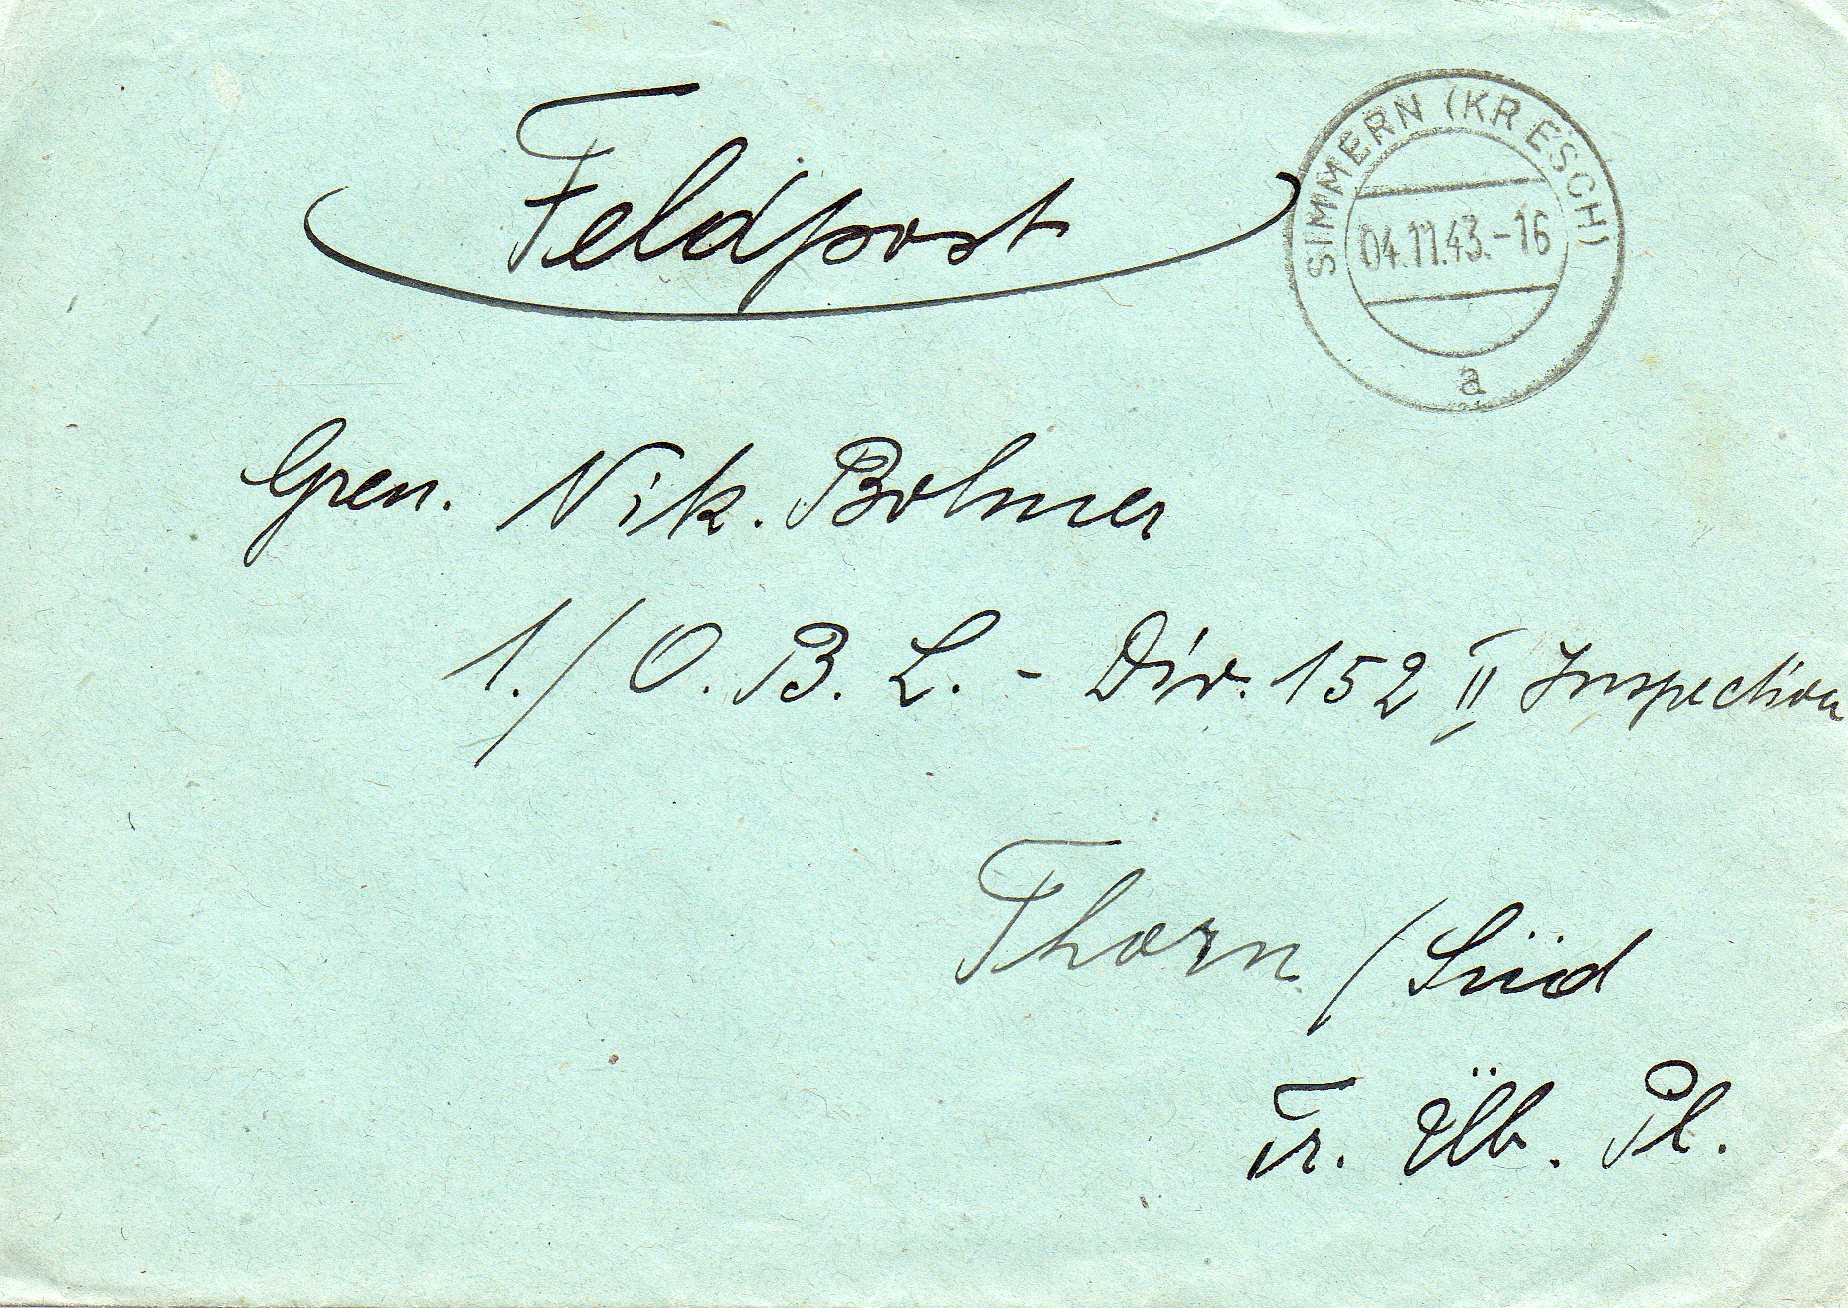 Feldpost
SIMMERN (KR ESCH)
04.11.43.-16
a
Gren. Nik. Bohmer
1./O.B.L. - Div. 152 II Inspection
Thorn / Süd
Tr. Üb. Pl.